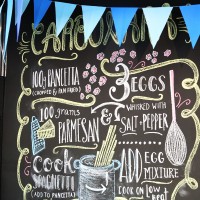 CARBONARA
100g PANCETTA
(CHOPPED & PAN FRIED)
3 EGGS
WHISKED WITH
SALT & PEPPER
100 grams
PARMESAN
&
cook
SPAGHETTI
(ADD TO PANCETTA)
ADD EGG
MIXTURE
COOK ON low
heat